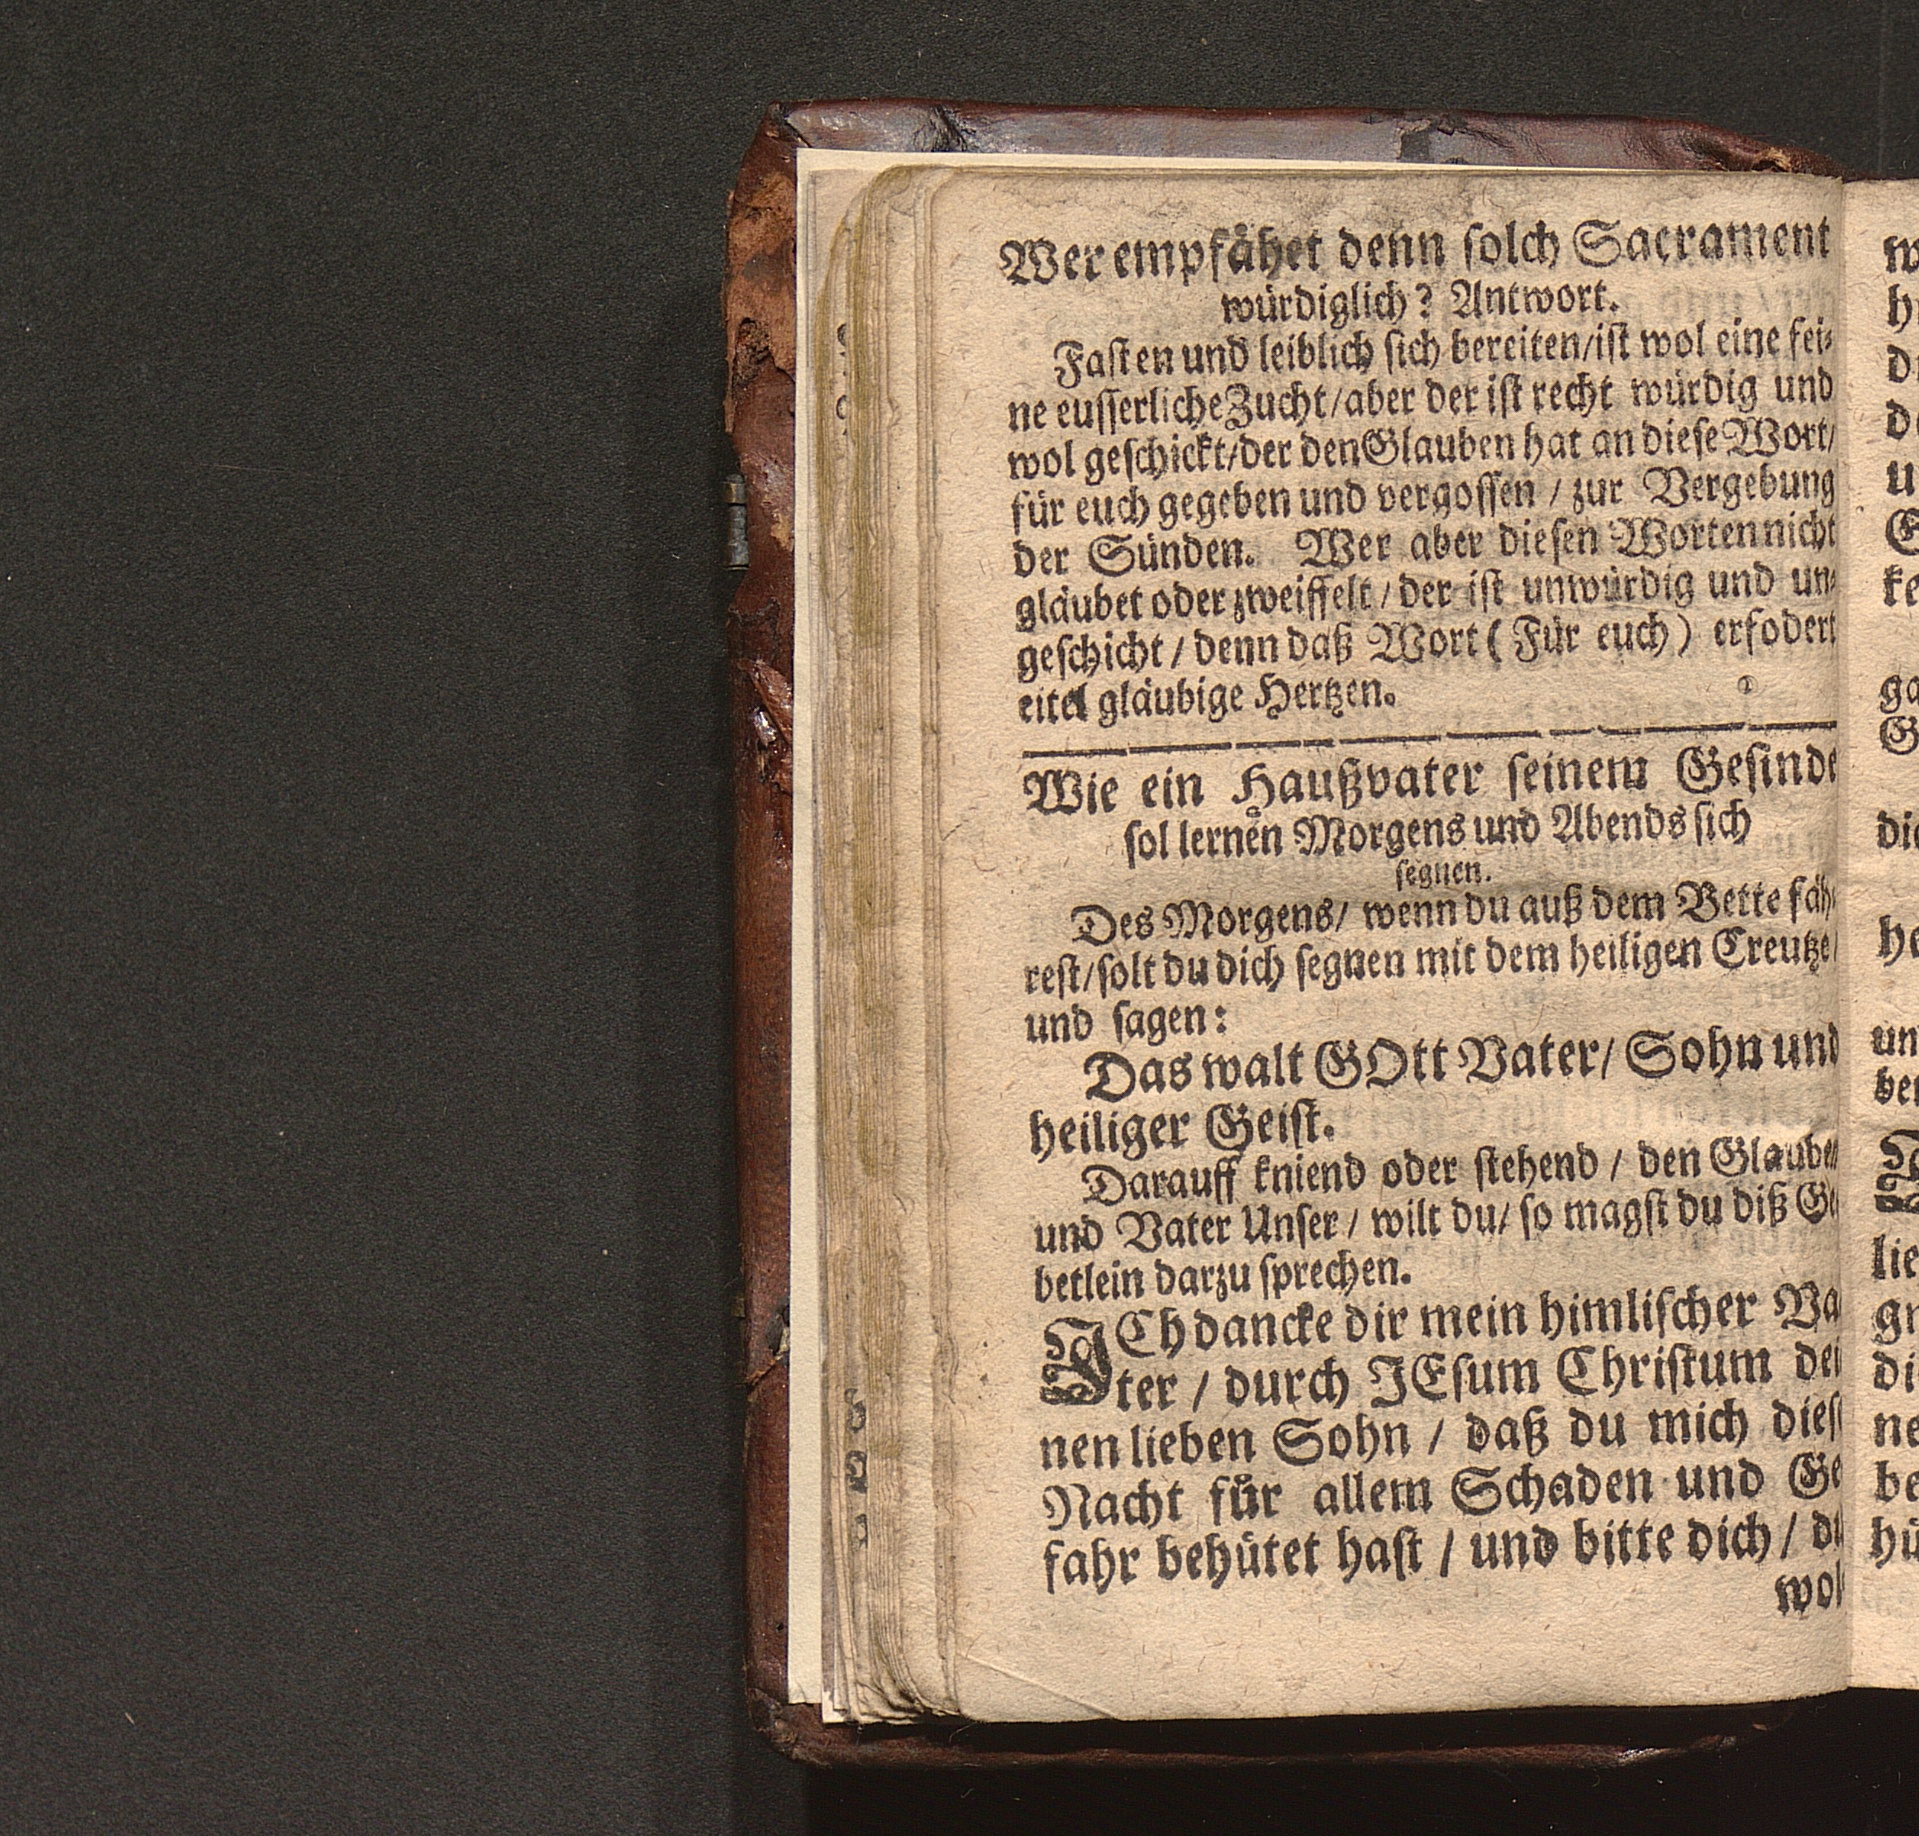 Wer empfähet denn ſolch Sacrament
würdiglich? Antwort.
Faſten und leiblich ſich bereiten/iſt wol eine fei⸗
ne euſſerliche Zucht/aber der iſt recht würdig und
wol geſchickt/der den Glauben hat an dieſe Wort/
für euch gegeben und vergoſſen / zur Vergebung
der Sünden. Wer aber dieſen Worten nicht
gläubet oder zweiffelt / der iſt unwürdig und un⸗
geſchicht / denn daß Wort ( Für euch ) erfodert
eitel gläubige Hertzen.
Wie ein Haußvater ſeinem Geſinde
ſol lernen Morgens und Abends ſich
ſegnen.
Des Morgens/ wenn du auß dem Bette fäh⸗
reſt/ſolt du dich ſegnen mit dem heiligen Creutze/
und ſagen:
Das walt GOtt Vater/ Sohn und
heiliger Geiſt.
Darauff kniend oder ſtehend / den Glauben
und Vater Unſer / wilt du/ ſo magſt du diß Ge
betlein darzu ſprechen.
ICh dancke dir mein himliſcher Va
ter / durch JEſum Chriſtum dei
nen lieben Sohn / daß du mich dieſe
Nacht fuͤr allem Schaden und Ge
fahr behütet haſt / und bitte dich / du
wol